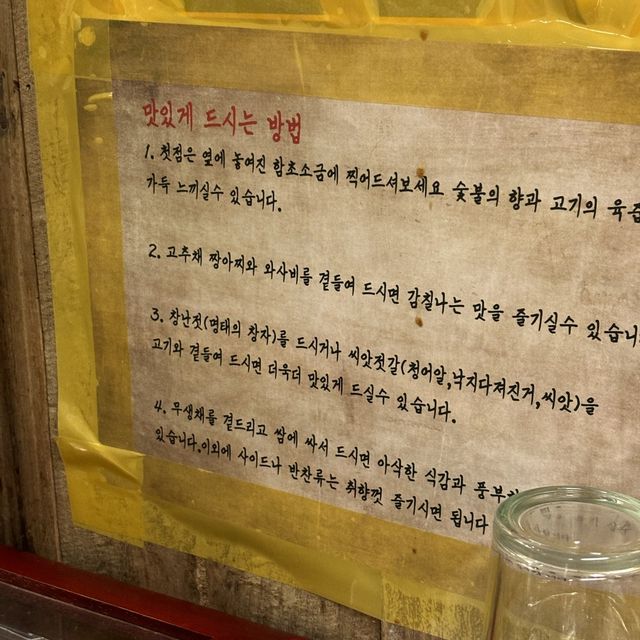 맛있게 드시는 방법
1. 첫점은 옆에 놓여진 함초소금에 찍어드셔보세요 숯불의 향과 고기의 육즙
가득 느끼실수 있습니다.
2. 고추채 짱아찌와 와사비를 곁들여 드시면 감칠나는 맛을 즐기실수 있습니다
3. 창난젓(명태의 창자)를 드시거나 씨앗젓갈(청어알,낙지다져진거,씨앗)을
고기와 곁들여 드시면 더욱더 맛있게 드실수 있습니다.
4. 무생채를 곁드리고 쌈에 싸서 드시면 아삭한 식감과
있습니다.이외에 사이드나 반찬류는 취향껏 즐기시면 됩니다